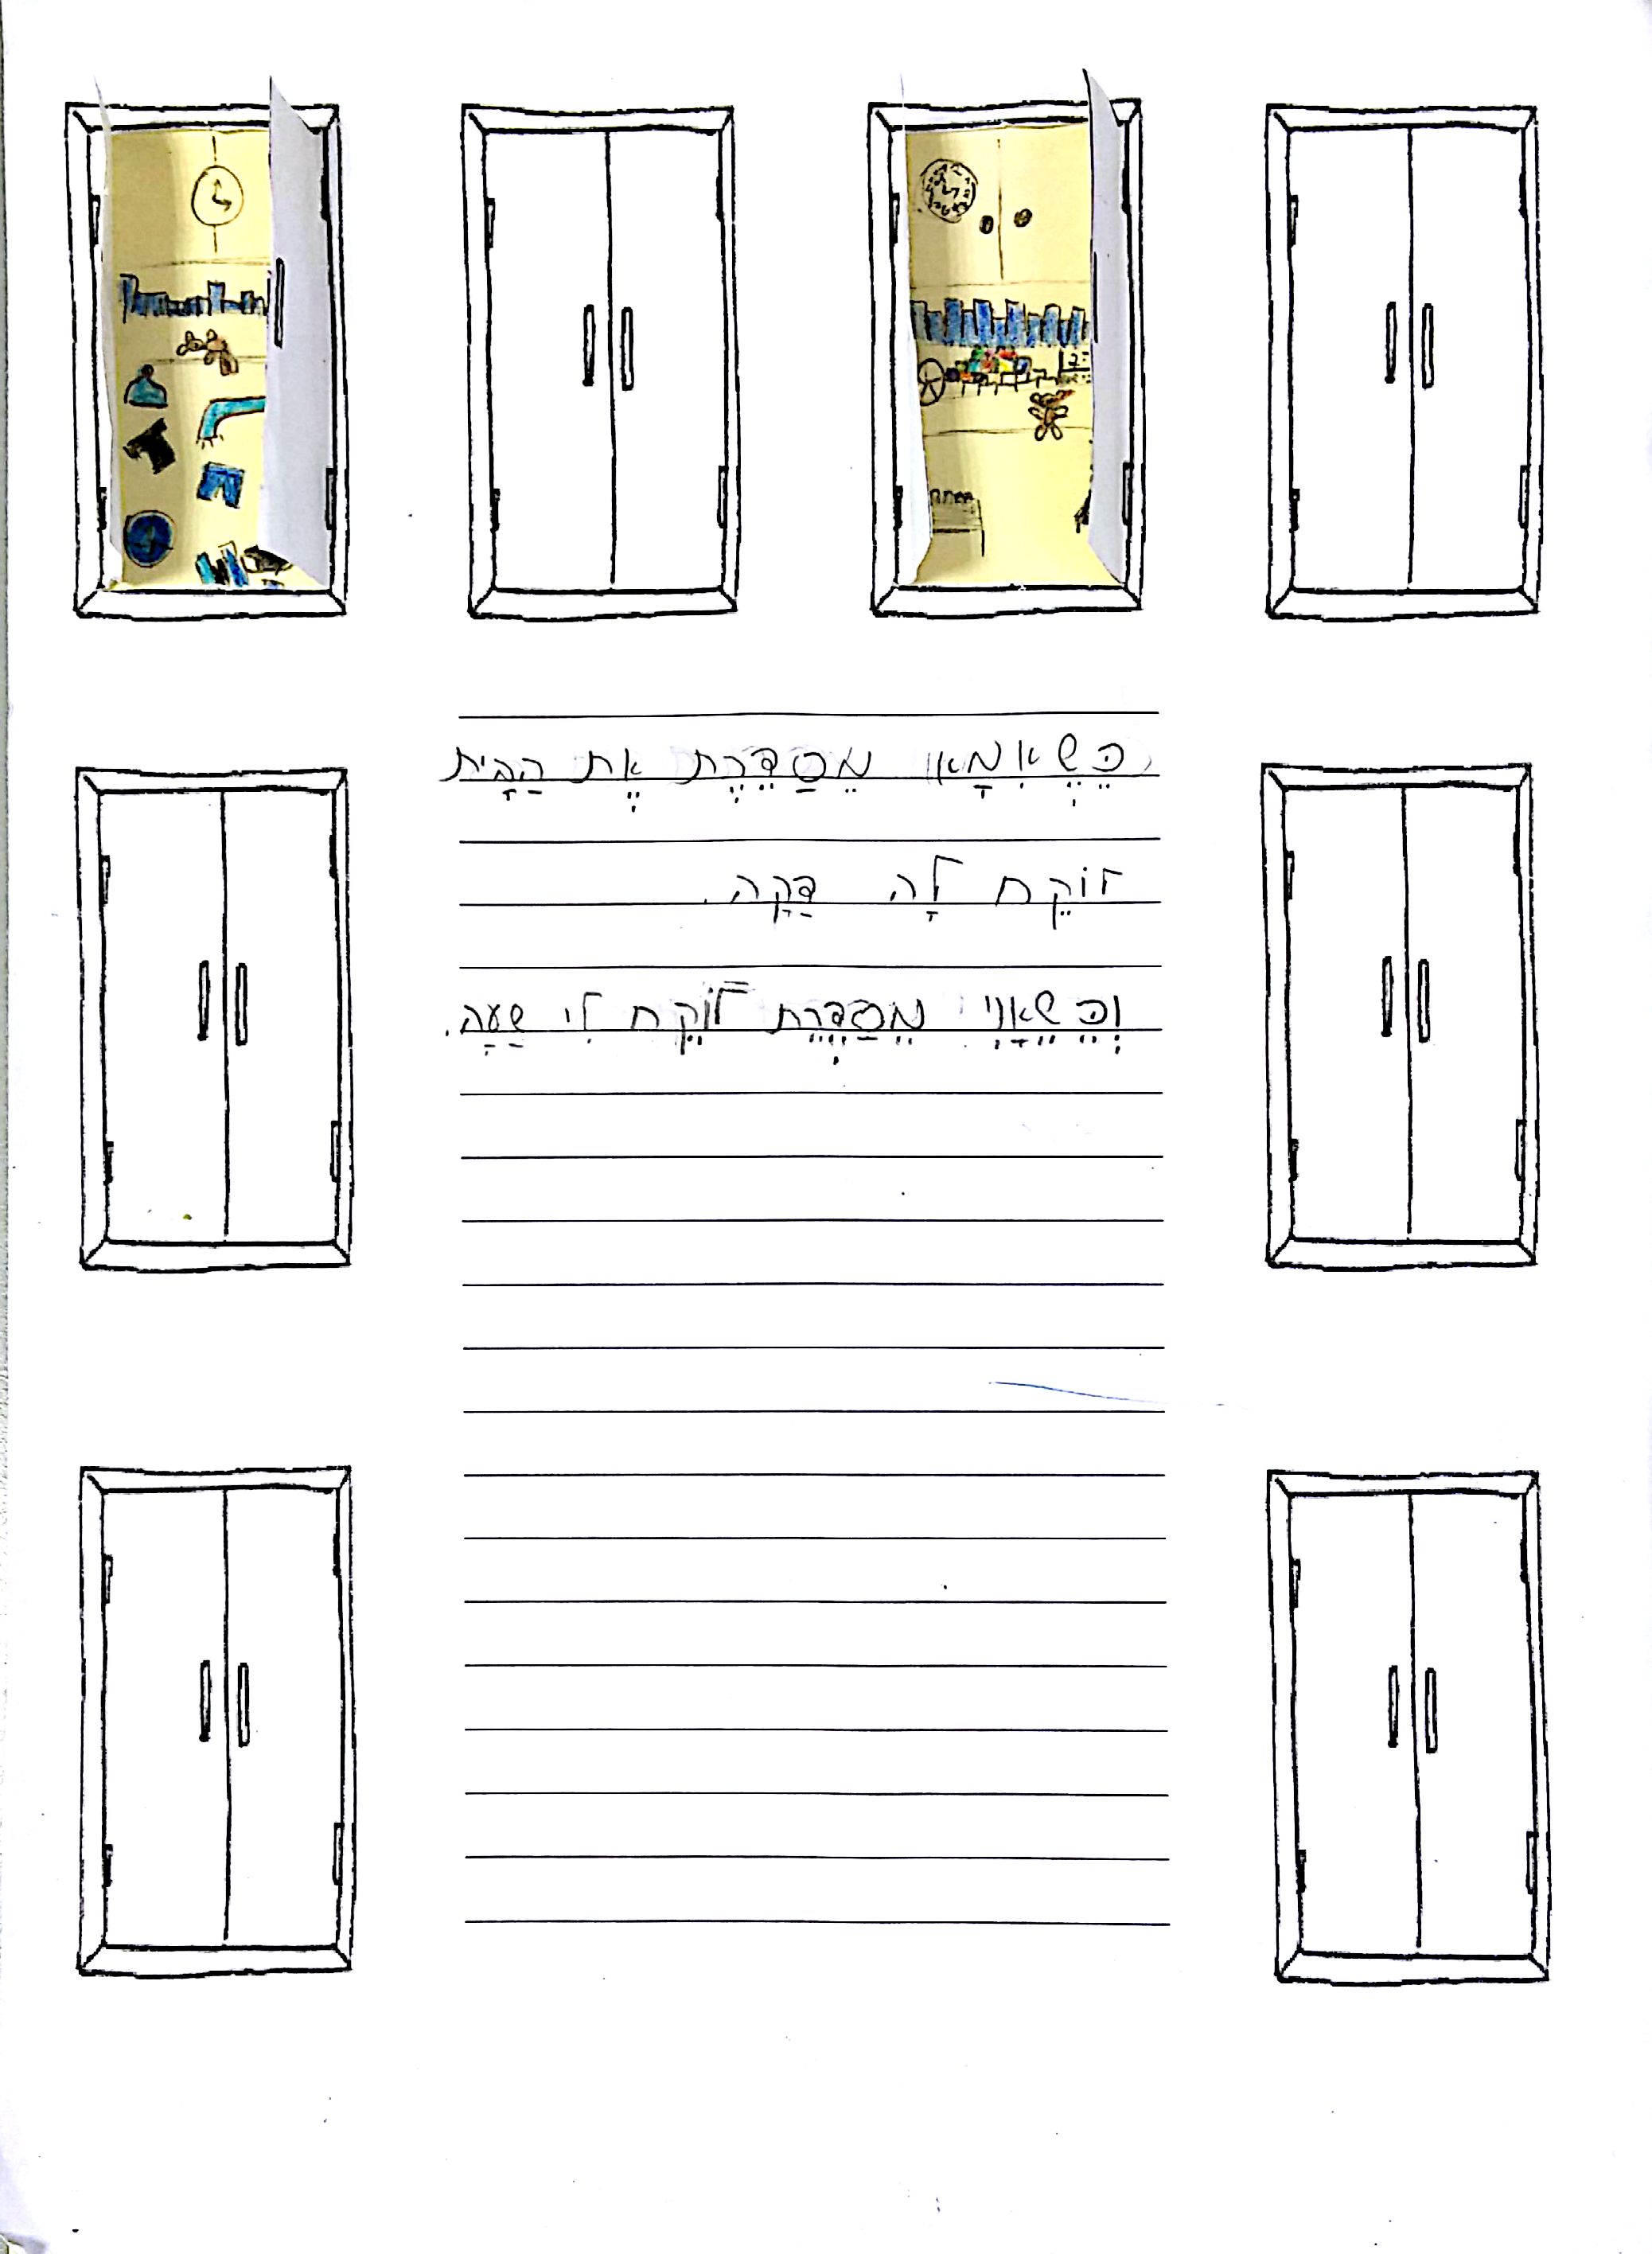 כְּשֶׁאִמָא מְסַדֶּרֶת אֶת הַבַּיִת
לוֹקֵחַ לָהּ דַּקָה.
וְכְּשֶׁאֲנִי מְסַדֶּרֶת לוֹקֵחַ לִי שַׁעָה.